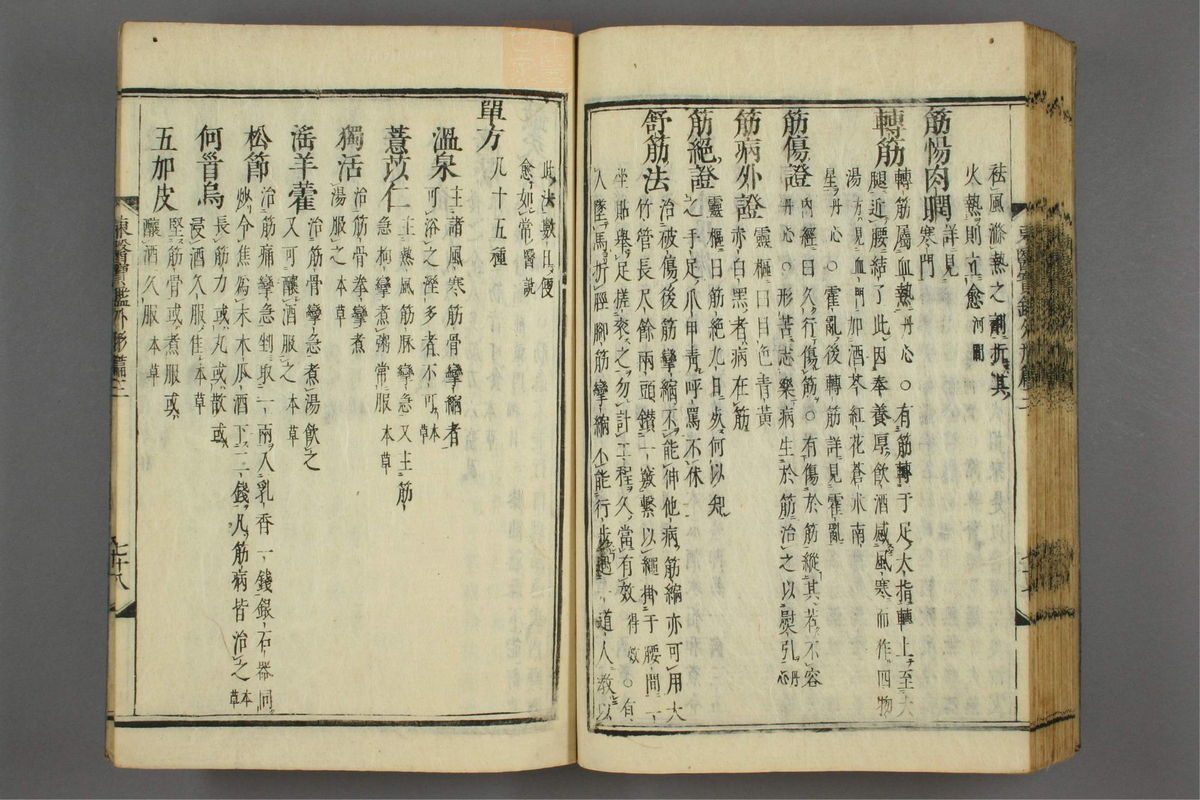 祛風滌熱之劑折其
火熱則立愈河間
筋惕肉瞤詳見
寒門
轉筋轉筋屬血熱丹心○有筋轉于足大指轉上至大
腿近腰結了此因奉養厚飲酒感風寒而作四物
湯方見血門加酒芩紅花蒼朮南
星丹心○霍亂轉筋詳見霍亂
筋傷證內經曰久行傷筋○有傷於筋縱其若不容
丹心○形苦志樂病生於筋治之以熨引丹心
筋病外證靈樞曰色青黃
赤白黑者病在筋
筋絕證靈樞曰筋絕九日死何以知
之手足爪甲青呼罵不休
舒筋法治破傷後筋攣縮不能伸他病筋縮亦可用大
竹管長尺餘兩頭鑚一竅繫以繩掛于腰間一
坐貼舉足搓滾之勿計工程久當有效得效○有
人墜馬折脛脚筋攣縮不能行步遇一道人教以
此法數日便
愈如常醫說
單方凡十五種
溫泉主諸風寒筋骨攣縮者
可浴之虛多者不可本草
薏苡仁主熱風筋脉攣急又主筋
急拘攣煮粥常服本草
獨活治筋骨拳攣煮
湯服之本草
淫羊藿治筋骨攣急煮湯飮之
又可釀酒服之本草
松節治筋痛攣急剉取一兩入乳香一錢銀石器同
炒令焦爲末木瓜酒下二錢凡筋病皆治之本草
何首烏長筋力或丸或散或
浸酒久服佳本草
五加皮堅筋骨或煮服或
釀酒久服本草
東醫寶鑑外形篇三
七十八